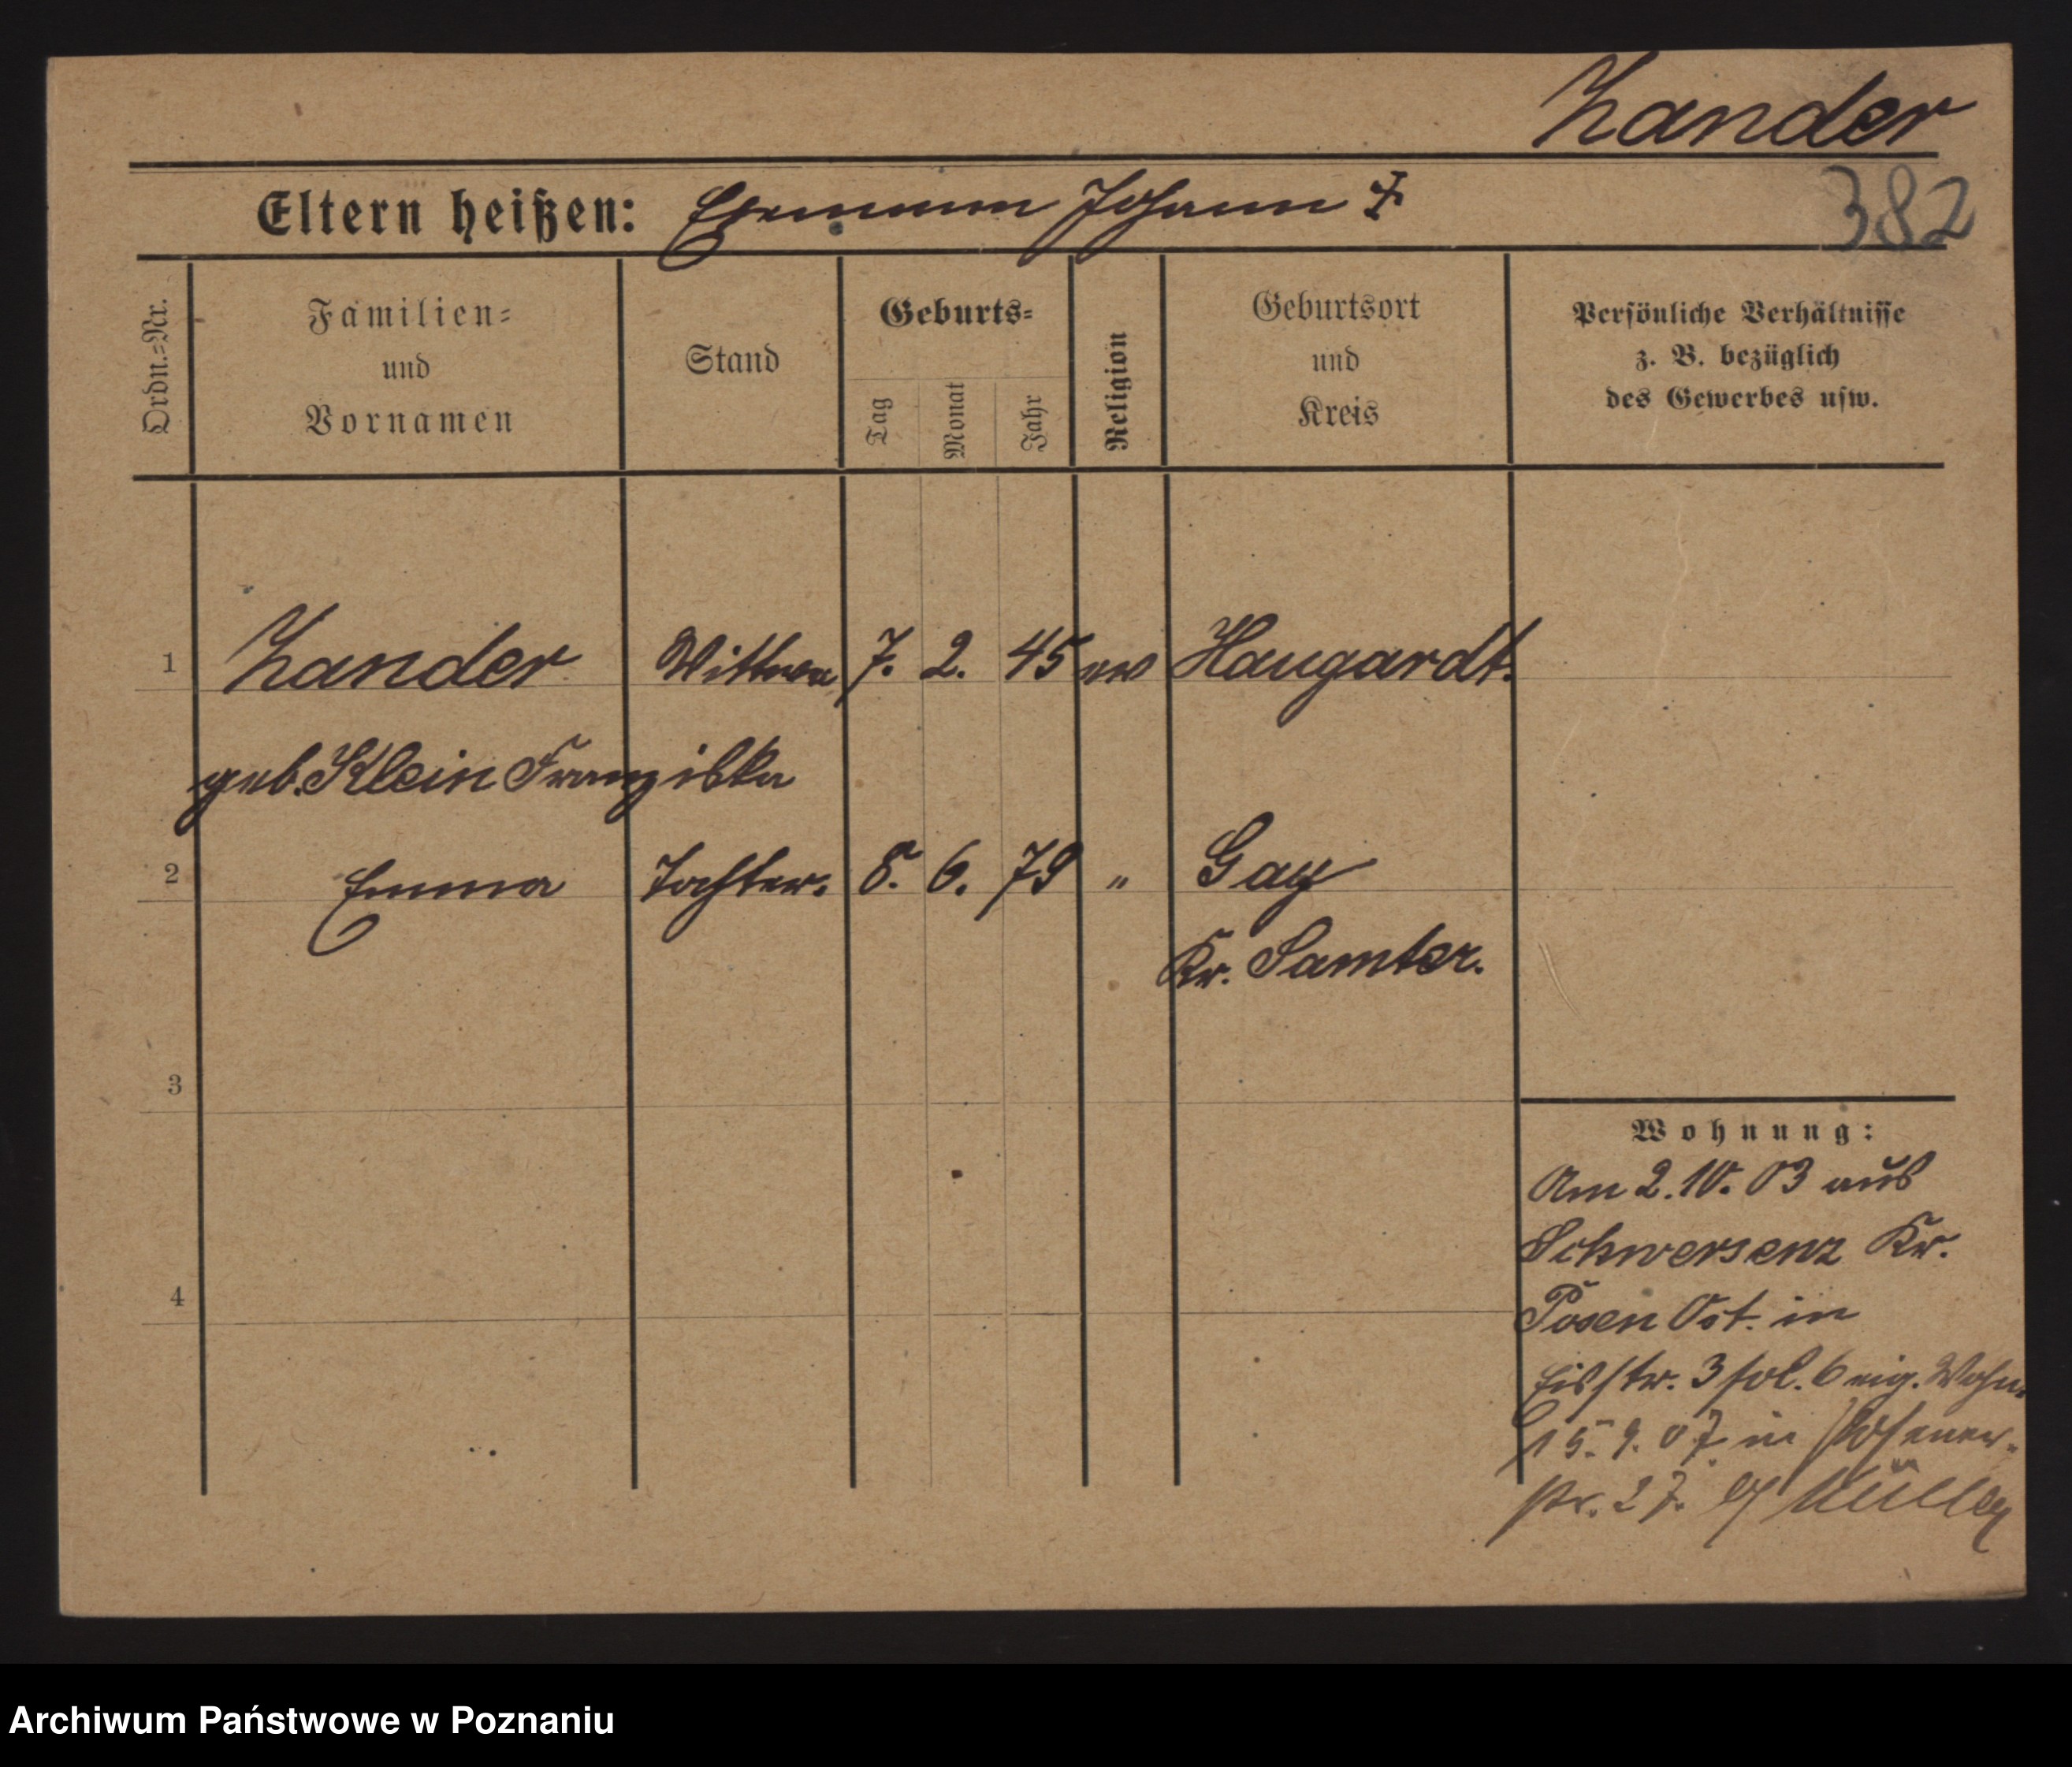 Zander
Eltern heißen: Ehemann Johann ‡
382
Ordn.=Nr.
Familien=
und
Vornamen
Stand
Geburts=
Tag
Monat
Jahr
Religion
Geburtsort
und
Kreis
Persönliche Verhältnisse
z. B. bezüglich
des Gewerbes usw.
1 Zander Wittwe 7. 2. 45 ev Haugardt.
geb. Klein Franziska
2 Emma Tochter. 8. 6. 79 " Gay
Kr. Samter.
3
4
Wohnung:
Am 2.10.03 aus
Schwersenz Kr.
Posen Ost. in
Eisstr. 3 fol. 6 eig. Wohn.
15.9.07 in Posener-
str. 27. Müller
Archiwum Państwowe w Poznaniu